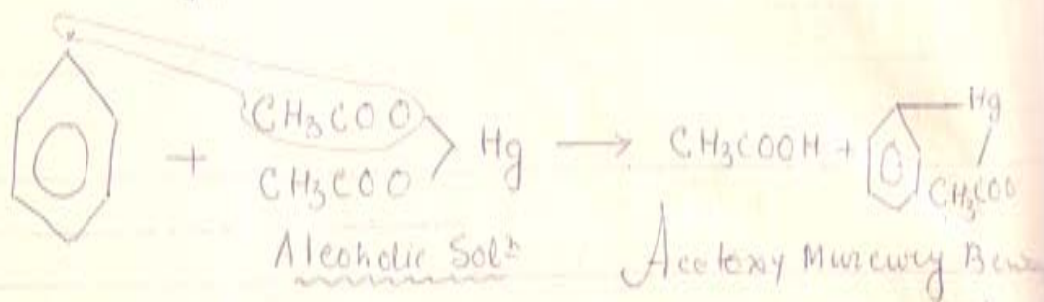 CH₃COO
+ Hg ⟶ CH₃COOH + Hg
CH₃COO CH₃COO
Alcoholic Solⁿ Acetoxy Murcury